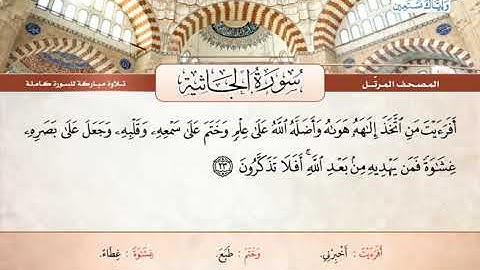 وَإِيَّاكَ نَسْتَعِينُ
المصحف المرتّل
سُورَةُ الجَاثِيَة
تلاوة مباركة للسورة كاملة
أَفَرَءَيْتَ مَنِ ٱتَّخَذَ إِلَـٰهَهُۥ هَوَىٰهُ وَأَضَلَّهُ ٱللَّهُ عَلَىٰ عِلْمٍ وَخَتَمَ عَلَىٰ سَمْعِهِۦ وَقَلْبِهِۦ وَجَعَلَ عَلَىٰ بَصَرِهِۦ
غِشَـٰوَةً فَمَن يَهْدِيهِ مِنۢ بَعْدِ ٱللَّهِ ۚ أَفَلَا تَذَكَّرُونَ ٢٣
أَفَرَءَيْتَ : أَخْبِرْنِي. وَخَتَمَ : طَبَعَ. غِشَـٰوَةً : غِطَاءً.